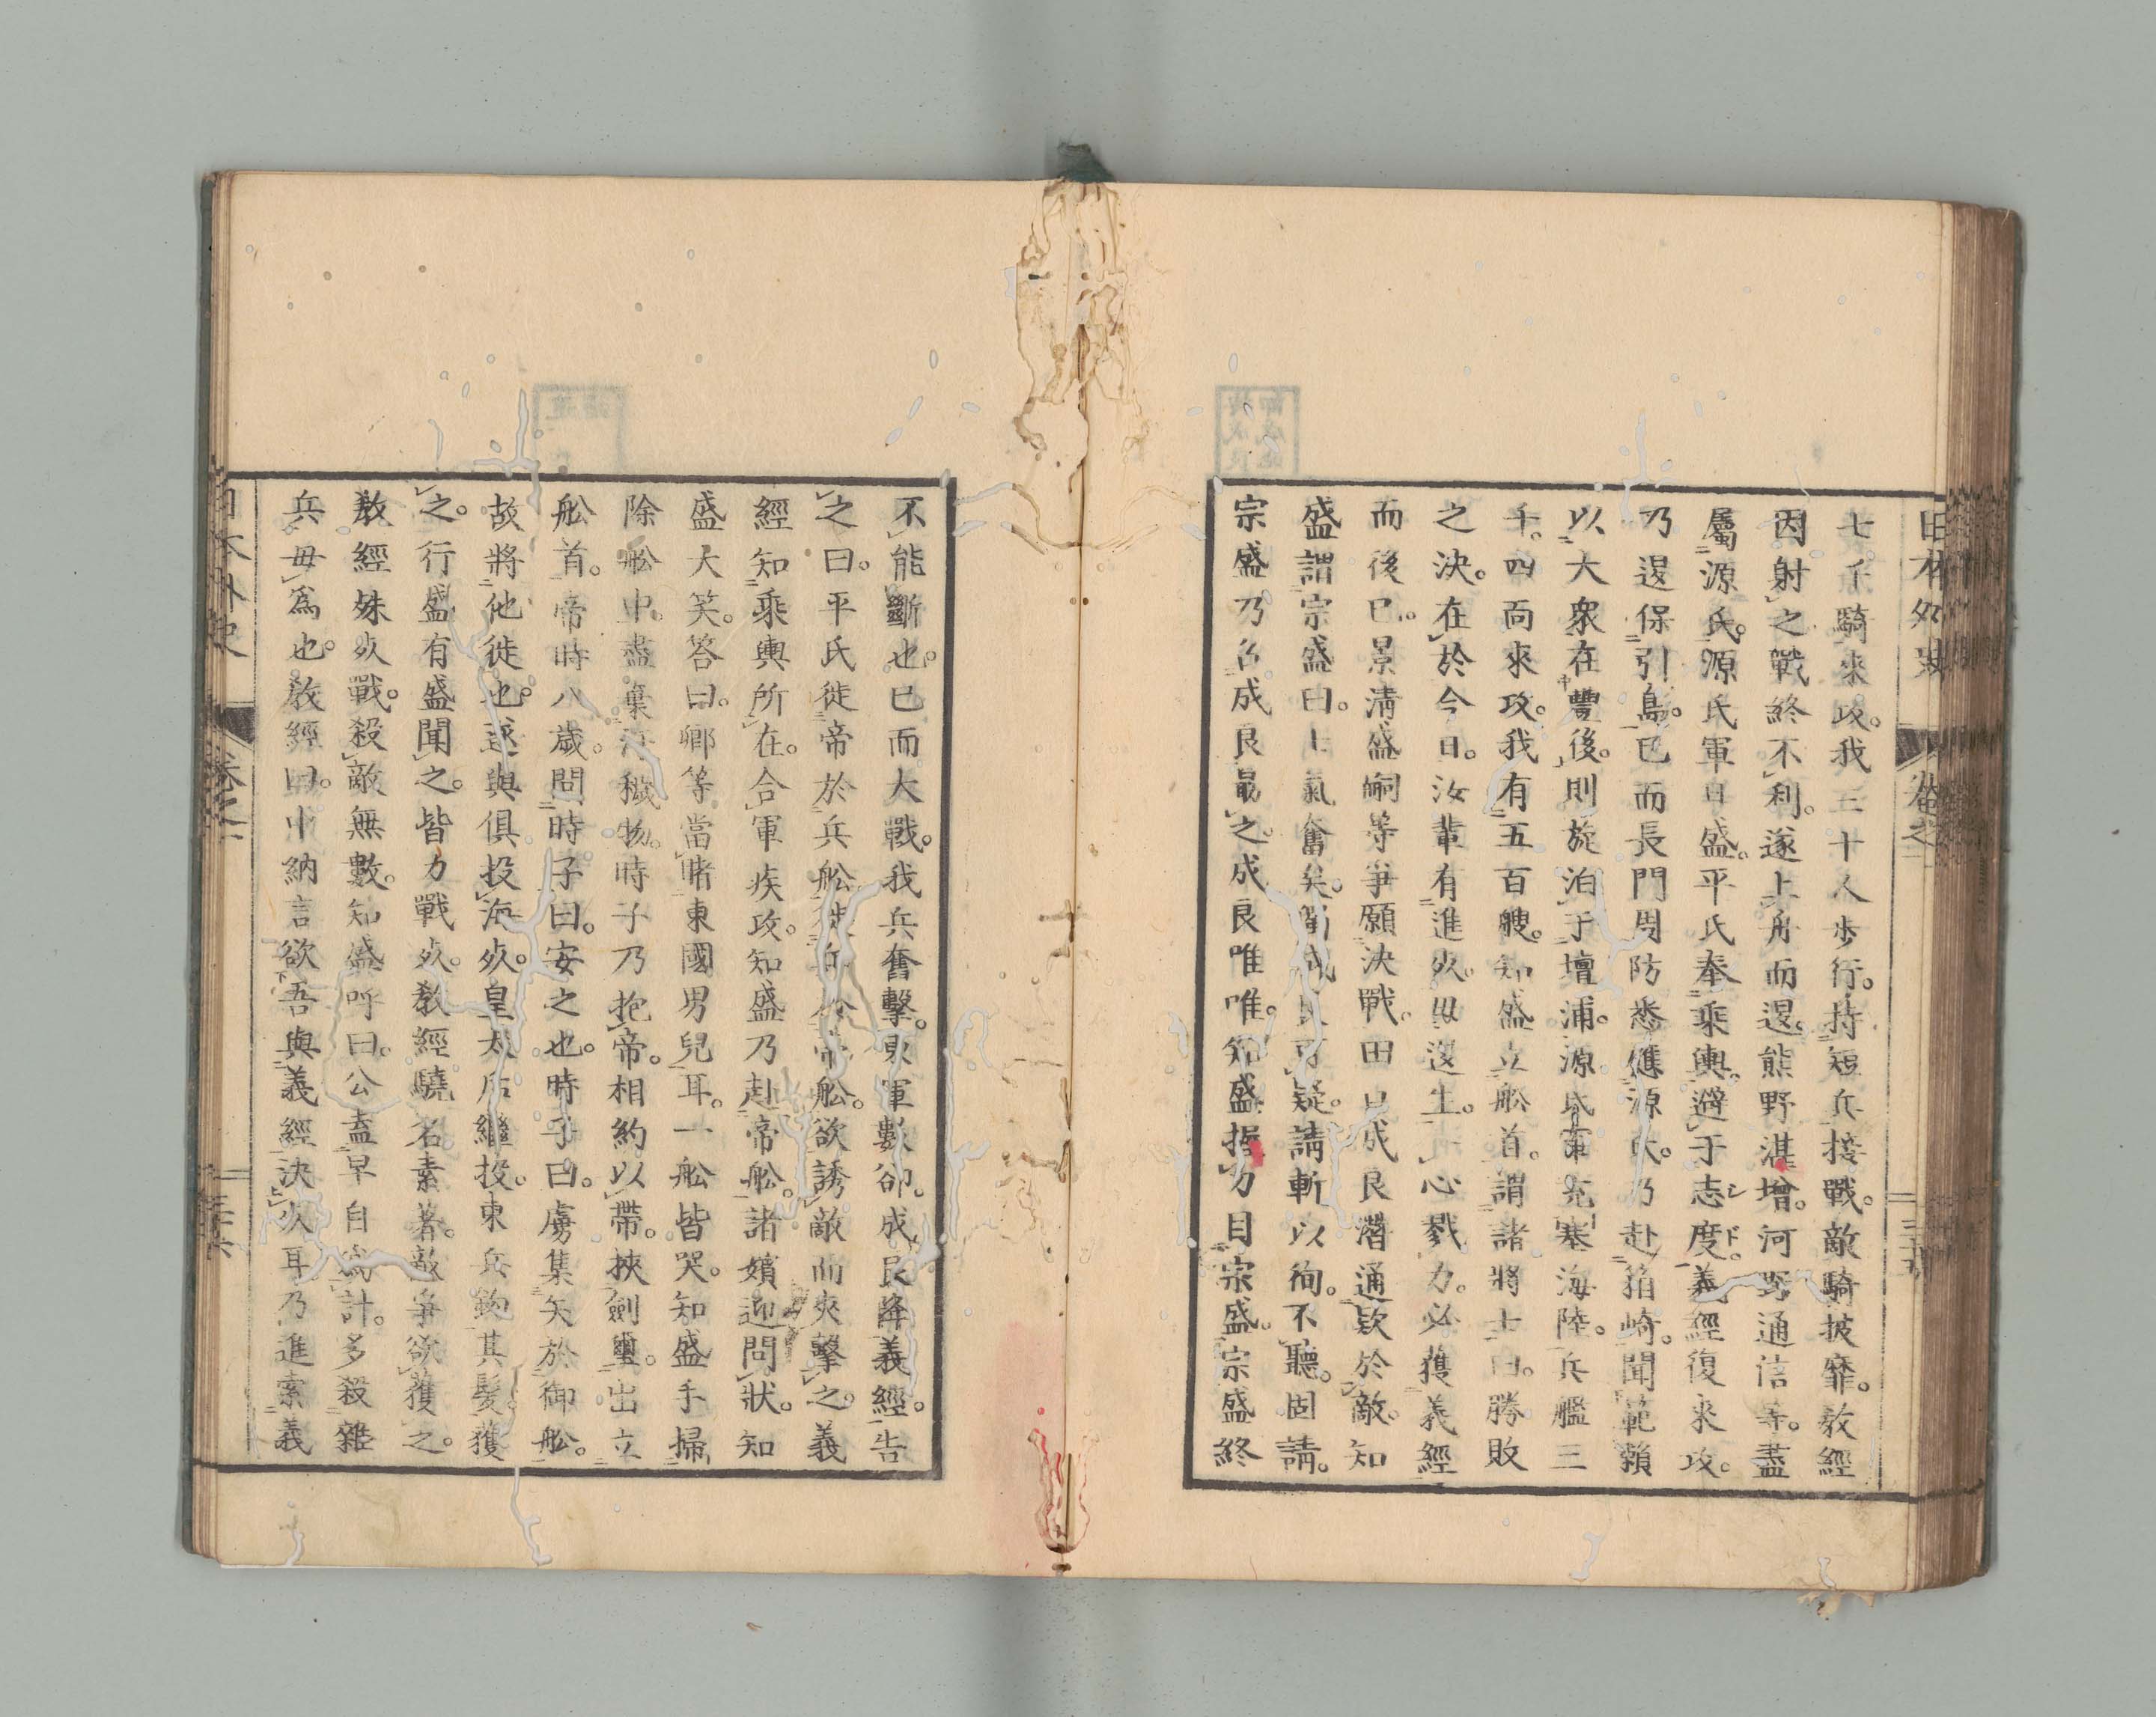 日本外史 卷之一 三十五
七千騎來攻。我三十人歩行。持短兵接戰。敵騎披靡。敎經
因射之戰終不利。遂上舟而還。熊野湛增。河野通信等。盡
屬源氏。源氏軍日盛。平氏奉乘輿。遷于志度。義經復來攻。
乃還保引島。已而長門周防悉應源氏。乃赴箱崎。聞範賴
以大衆在豐後。則旋泊于壇浦。源氏軍充塞海陸。兵艦三
千。四面來攻。我有五百艘。知盛立舩首。謂諸將士曰。勝敗
之決。在於今日。汝輩有進死。毋退生。一心戮力。必獲義經
而後已。景淸盛嗣等爭願決戰。田口成良潛通款於敵。知
盛謂宗盛曰。士氣奮矣。獨成良可疑。請斬以徇。不聽。固請。
宗盛乃召成良最之。成良唯唯。知盛握刀目宗盛。宗盛終
不能斷也。已而大戰。我兵奮擊。東軍數卻。成良降義經。告
之曰。平氏徙帝於兵舩。徙兵於帝舩。欲誘敵而夾擊之。義
經知乘輿所在。合軍疾攻。知盛乃赴帝舩。諸嬪迎問狀。知
盛大笑。答曰。卿等當睹東國男兒耳。一舩皆哭。知盛手掃
除舩中。盡棄汙穢物。時子乃抱帝。相約以帶。挾劍璽。出立
舩首。帝時八歲。問時子曰。安之也。時子曰。虜集矢於御舩。
故將他徙也。遂與俱投海死。皇太后繼投。東兵鉤其髮獲
之。行盛有盛聞之。皆力戰死。敎經驍名素著。敵爭欲獲之。
敎經殊死戰。殺敵無數。知盛呼曰。公盍早自爲計。多殺雜
兵毋爲也。敎經曰。中納言欲吾與義經決死耳。乃進索義
日本外史 卷之一 三十六